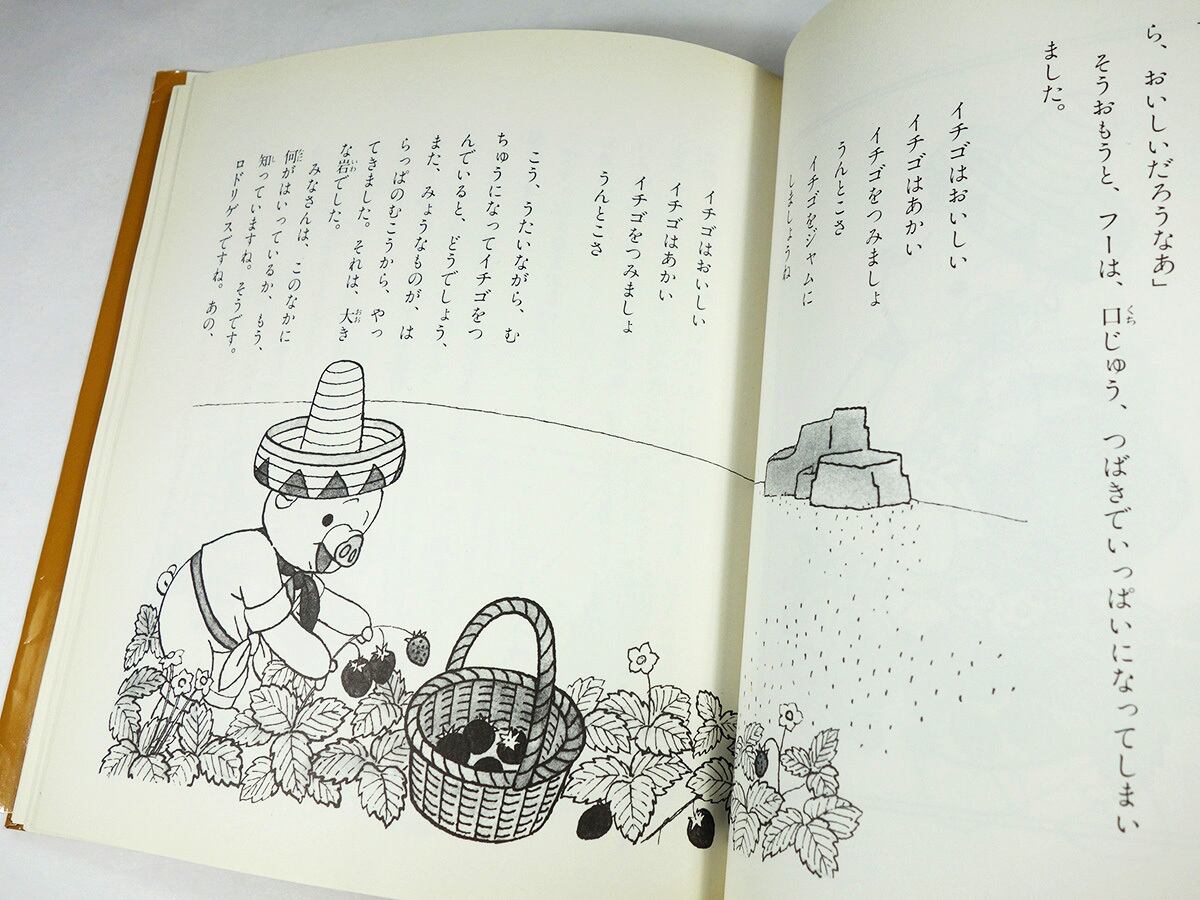 ら、おいしいだろうなあ」
そうおもうと、フーは、口じゅう、つばきでいっぱいになってしまい
ました。
イチゴはおいしい
イチゴはあかい
イチゴをつみましょ
うんとこさ
イチゴをジャムに
しましょうね
イチゴはおいしい
イチゴはあかい
イチゴをつみましょ
うんとこさ
こう、うたいながら、む
ちゅうになってイチゴをつ
んでいると、どうでしょう、
また、みょうなものが、は
らっぱのむこうから、やっ
てきました。それは、大き
な岩でした。
みなさんは、このなかに
何がはいっているか、もう、
知っていますね。そうです。
ロドリゲスですね。あの、